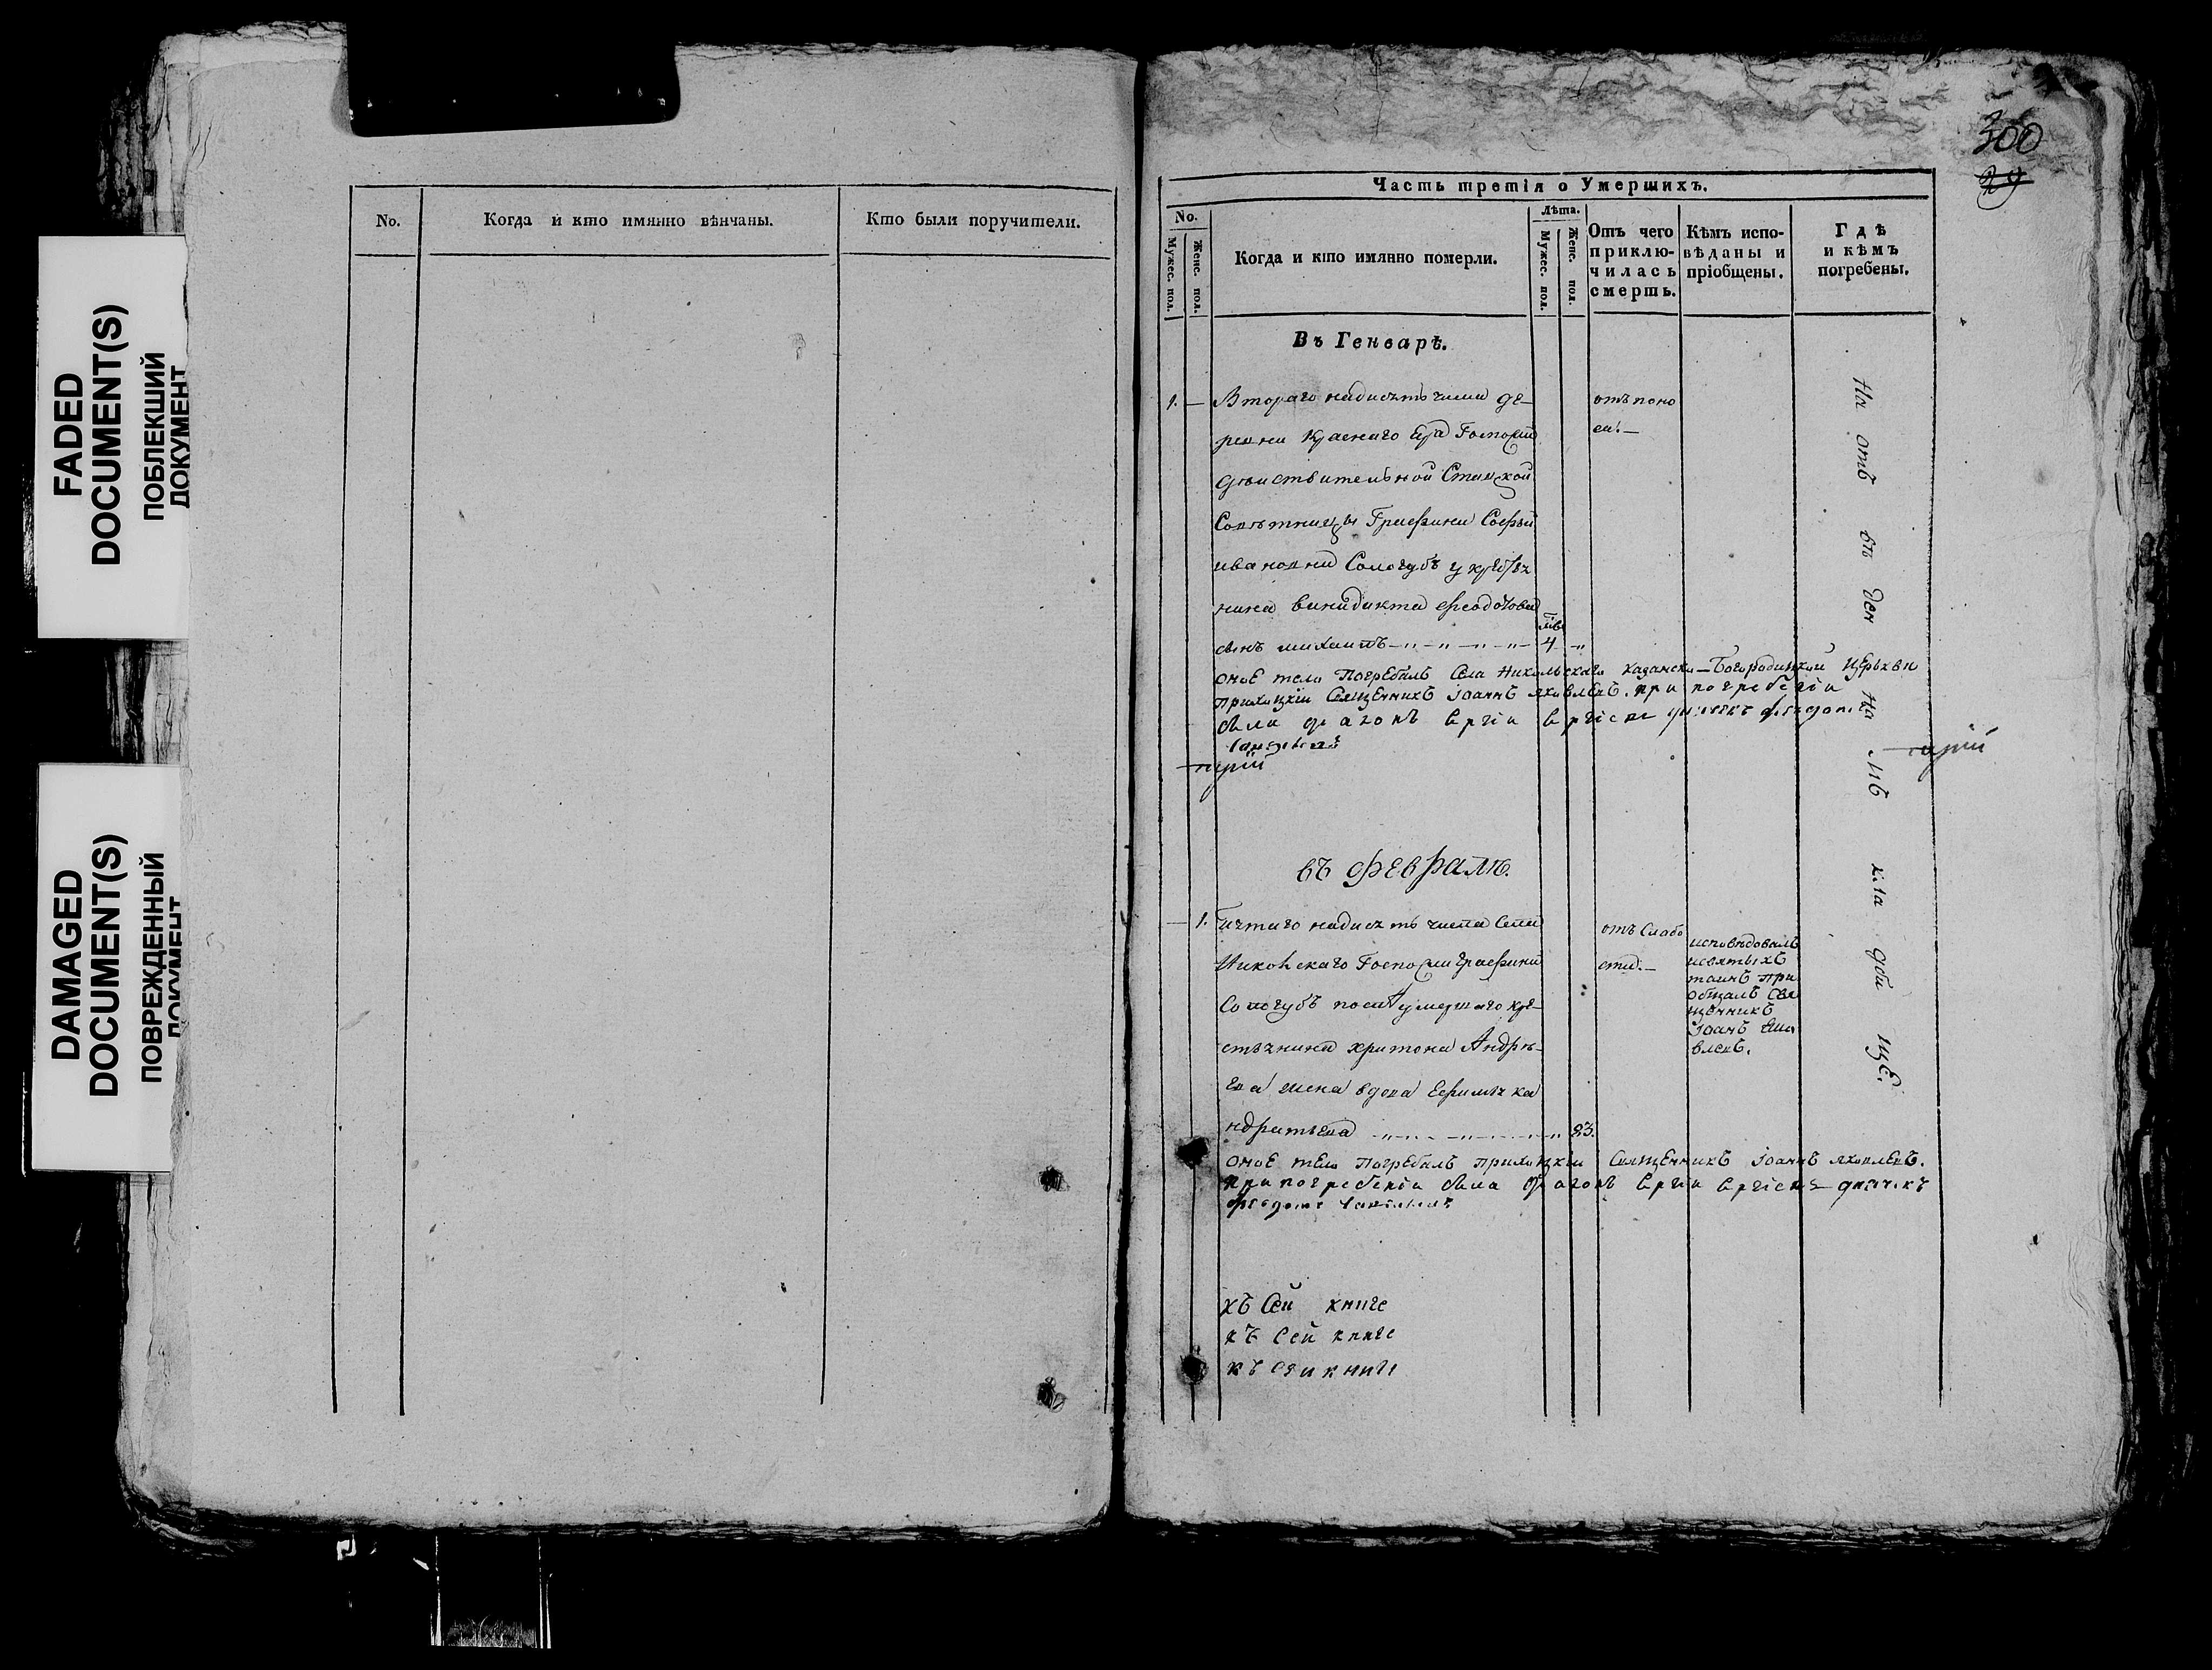 FADED
DOCUMENT(S)
ПОБЛЕКШИЙ
ДОКУМЕНТ
DAMAGED
DOCUMENT(S)
ПОВРЕЖДЕННЫЙ
ДОКУМЕНТ
No.
Когда и кто имянно вѣнчаны.
Кто были поручители.
300
29
Часть третія о Умершихъ.
No.
Мужес. пол.
Женс. пол.
Когда и кто имянно померли.
Лѣта.
Мужес. пол.
Женс. пол.
Отъ чего
приклю-
чилась
смерть.
Кѣмъ испо-
вѣданы и
пріобщены.
Гдѣ
и кѣмъ
погребены.
Въ Генварѣ.
1. — Втораго надесять числа де-
ревни Краснаго Яра Госпожи
дѣйствительной Статской
Совѣтницы Графини Софьи
Ивановни Сологубъ у кресть
нина Винидикта Феодотова
сынъ Михаилъ 4
отъ поно
са. —
оное тело погребалъ села Никольскаго Казанско-Богородицкой церькви
приходскій священникъ Іоаннъ Яковлевъ. при погребеніи
были
На отъ въ ден На
кла дби щЕ.
въ Февралѣ.
— 1. надесять числа села
Никольскаго Госпожи Графини
Сологубъ послѣ умершаго кре-
стьянина Харитона Андрѣ-
ева жена вдова Ефимья Ка
ндратьева 83.
отъ слабо
сти. —
исповѣдовалъ
и святыхъ
таинъ при
общалъ свя
щенникъ
Іоанъ Яко
влевъ.
оное тело погребалъ приходскіи священникъ Іоаннъ Яковлевъ.
при погребеніи были
къ сей книге
къ сей книге
къ сей книги